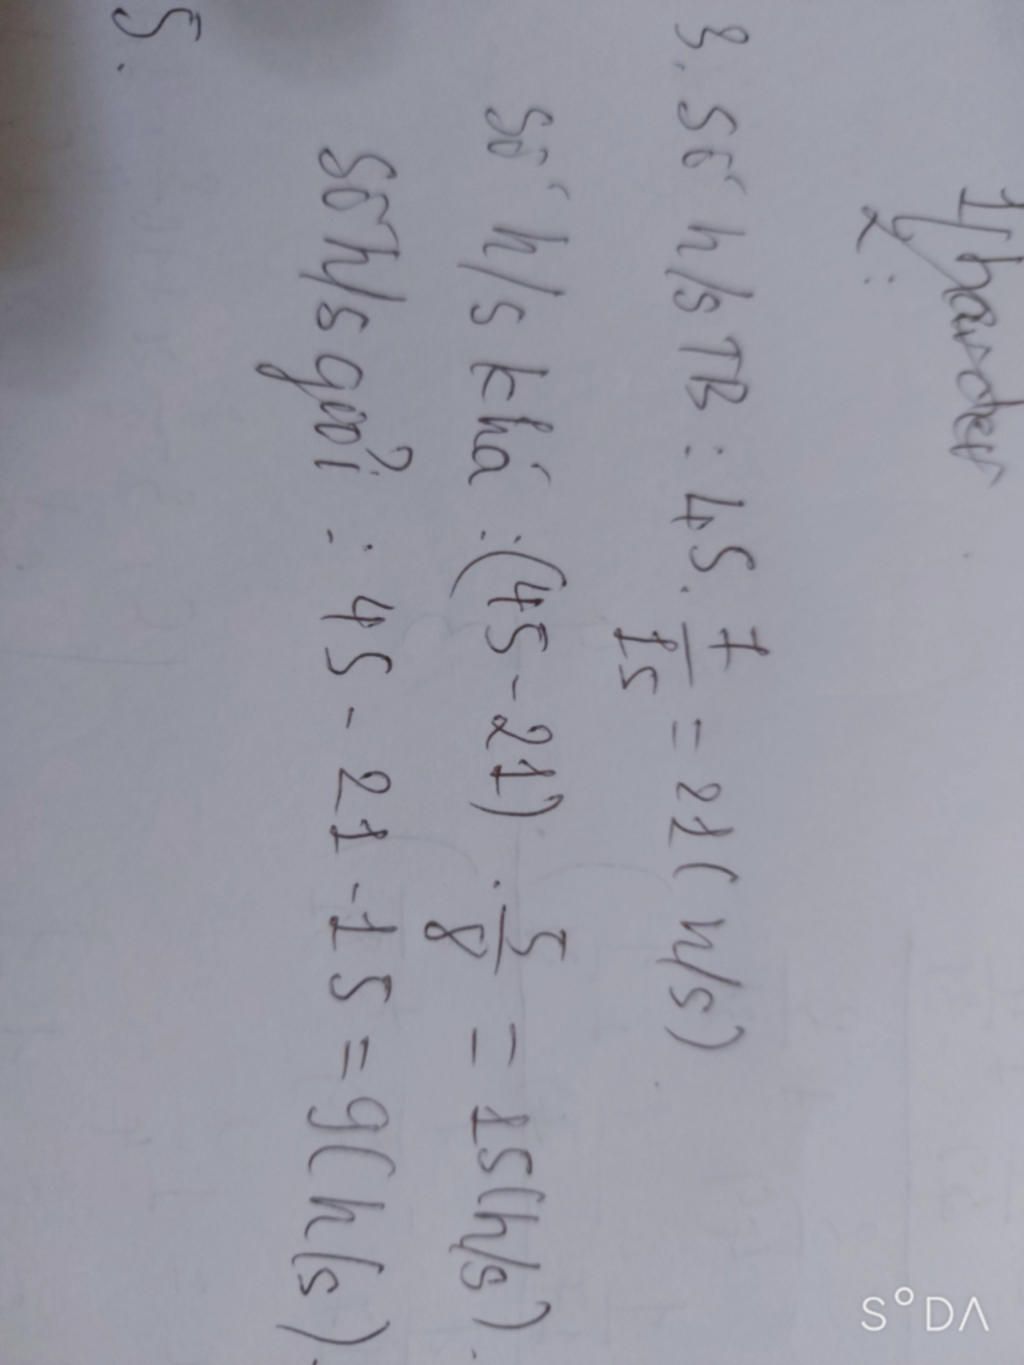 1/ harder
2:
3. Số h/s TB : 45 . 7/15 = 21 ( h/s )
Số h/s khá : ( 45 - 21 ) . 5/8 = 15 ( h/s ) .
Số h/s giỏi : 45 - 21 - 15 = 9 ( h/s ) .
5.
S°DΛ